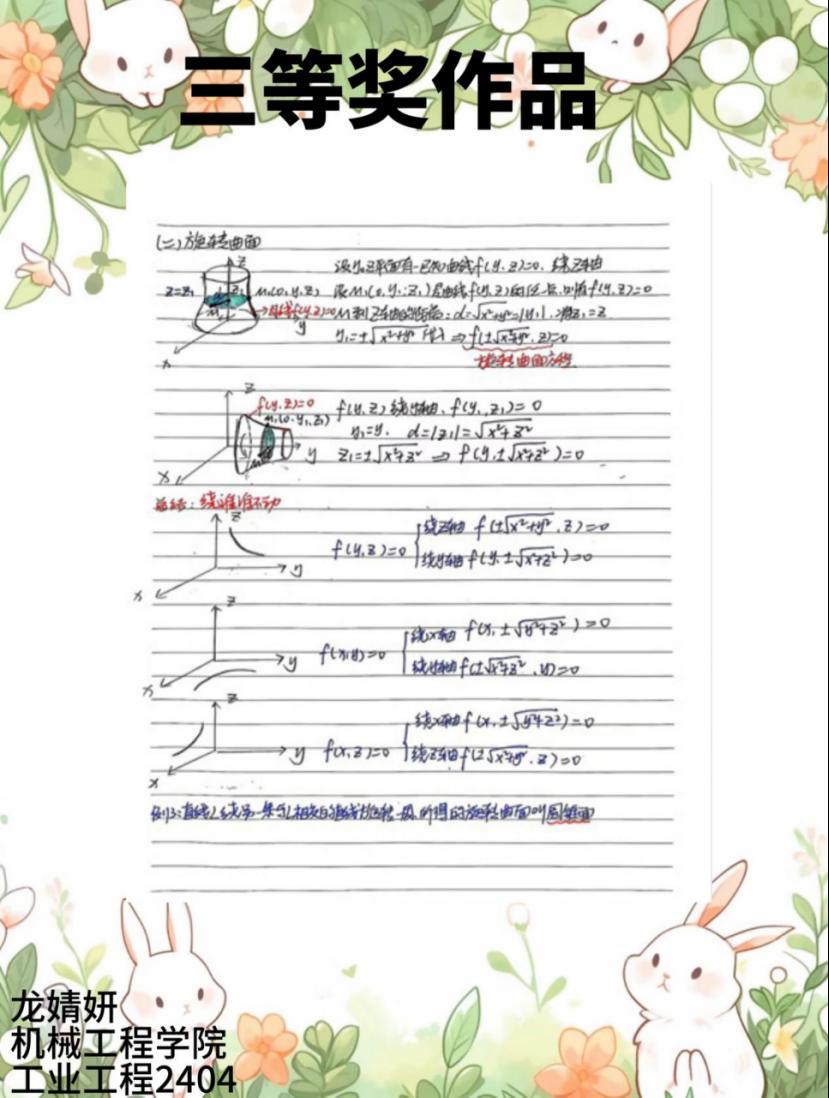 三等奖作品
(二)旋转曲面
设y.Z平面有一已知曲线f(y.z)=0. 绕Z轴
z=z₁ M₁(0,y₁,z₁) 设M₁(0,y₁,z₁)为曲线f(y.z)的任一点,则有f(y.z)=0
f(y.z)=0 M到Z轴的距离:d=√x²+y²=|y₁|.
y₁=±√x²+y² ⇒ f(±√x²+y², z)=0
旋转曲面方程
z
f(y.z)=0
M₁(0,y₁,z₁)
f(y.z)绕y轴. f(y₁,z₁)=0
y₁=y. d=|z₁|=√x²+z²
z₁=±√x²+z² ⇒ f(y,±√x²+z²)=0
x y
总结:绕谁谁不动
z
f(y,z)=0
绕z轴 f(±√x²+y²,z)=0
绕y轴 f(y,±√x²+z²)=0
x y
z
f(x,y)=0
绕x轴 f(x,±√y²+z²)=0
绕y轴 f(±√x²+z²,y)=0
x y
z
f(x,z)=0
绕x轴 f(x,±√y²+z²)=0
绕z轴 f(±√x²+y²,z)=0
x y
例3:直线L绕另一条与L相交的直线旋转一周,所得的旋转曲面叫圆锥面
龙婧妍
机械工程学院
工业工程2404